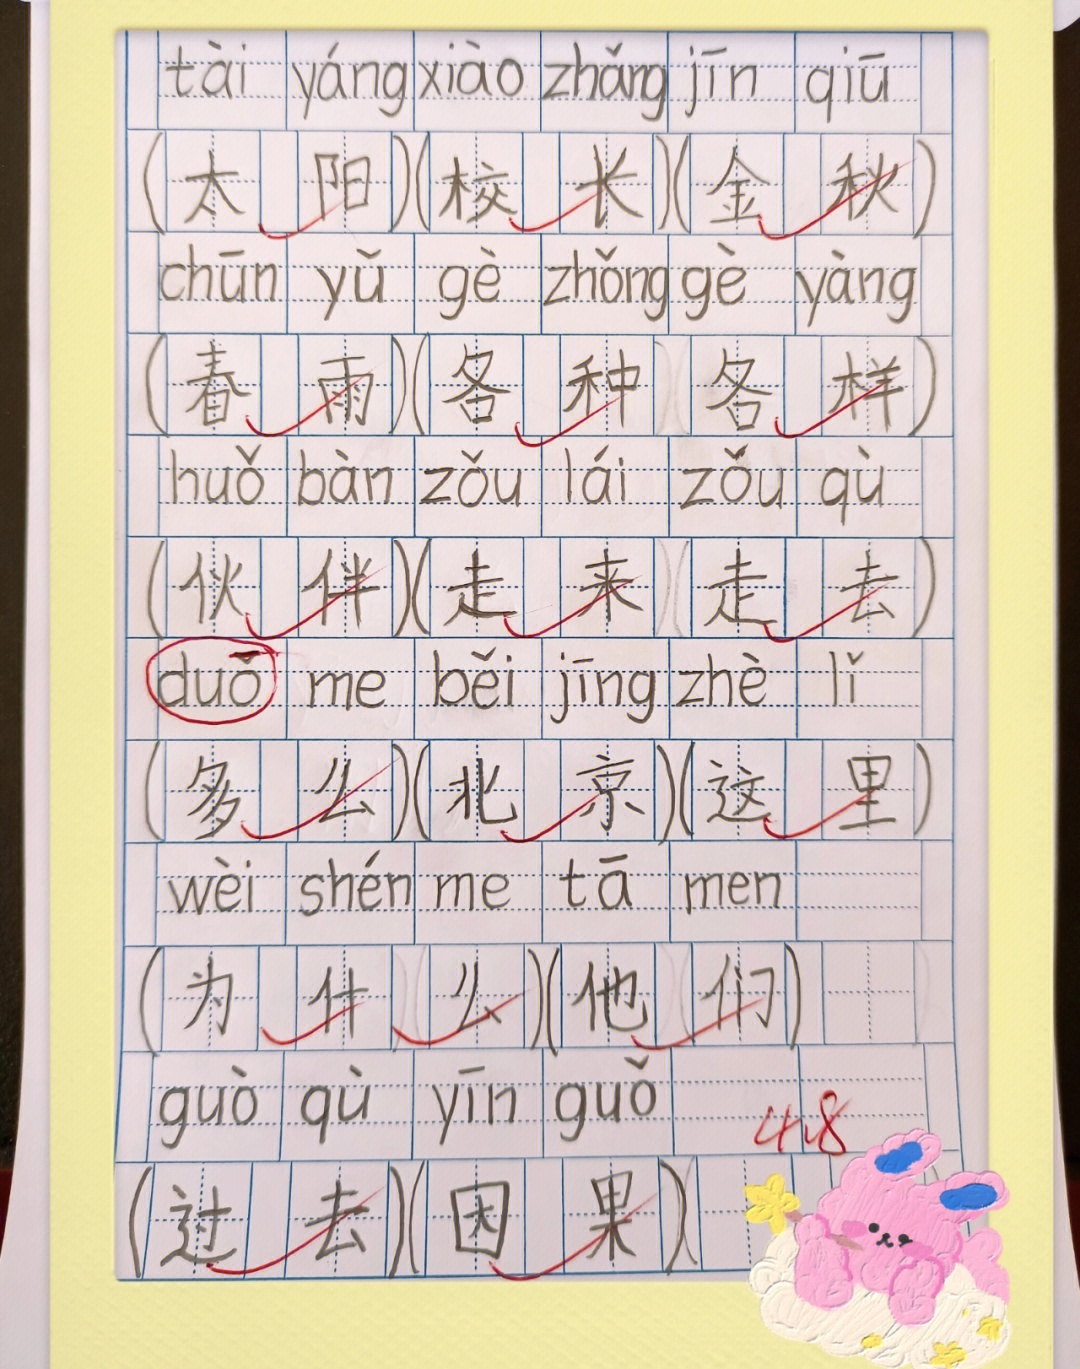 tài yáng xiào zhǎng jīn qiū
(太阳)(校长)(金秋)
chūn yǔ gè zhǒng gè yàng
(春雨)(各种各样)
huǒ bàn zǒu lái zǒu qù
(伙伴)(走来走去)
duō me běi jīng zhè lǐ
(多么)(北京)(这里)
wèi shén me tā men
(为什么)(他们)
guò qù yīn guǒ
4.8
(过去)(因果)